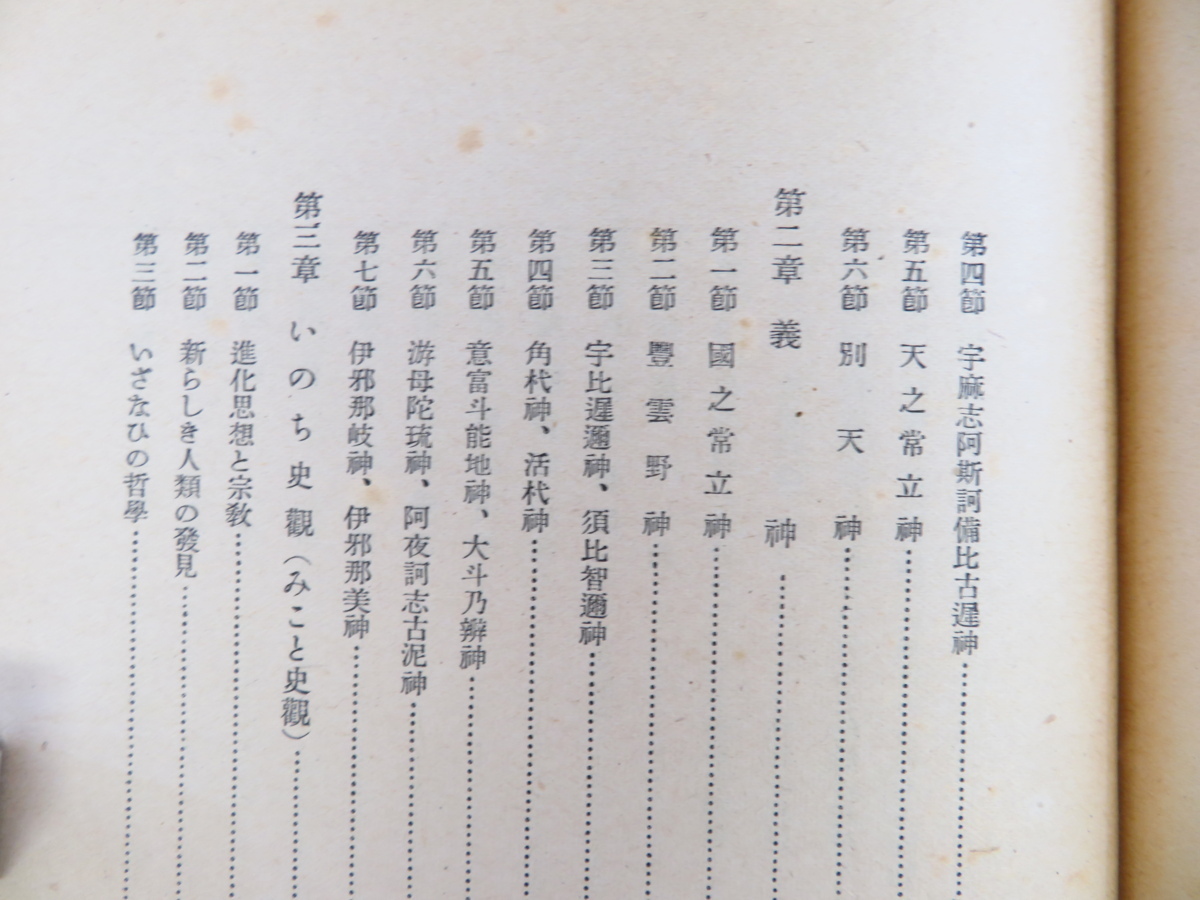 第四節　宇麻志阿斯訶備比古遲神
第五節　天之常立神
第六節　別天神
第二章　義神
第一節　國之常立神
第二節　豐雲野神
第三節　宇比遲邇神、須比智邇神
第四節　角杙神、活杙神
第五節　意富斗能地神、大斗乃辨神
第六節　游母陀琉神、阿夜訶志古泥神
第七節　伊邪那岐神、伊邪那美神
第三章　いのち史觀（みこと史觀）
第一節　進化思想と宗教
第二節　新らしき人類の發見
第三節　いさなひの哲學